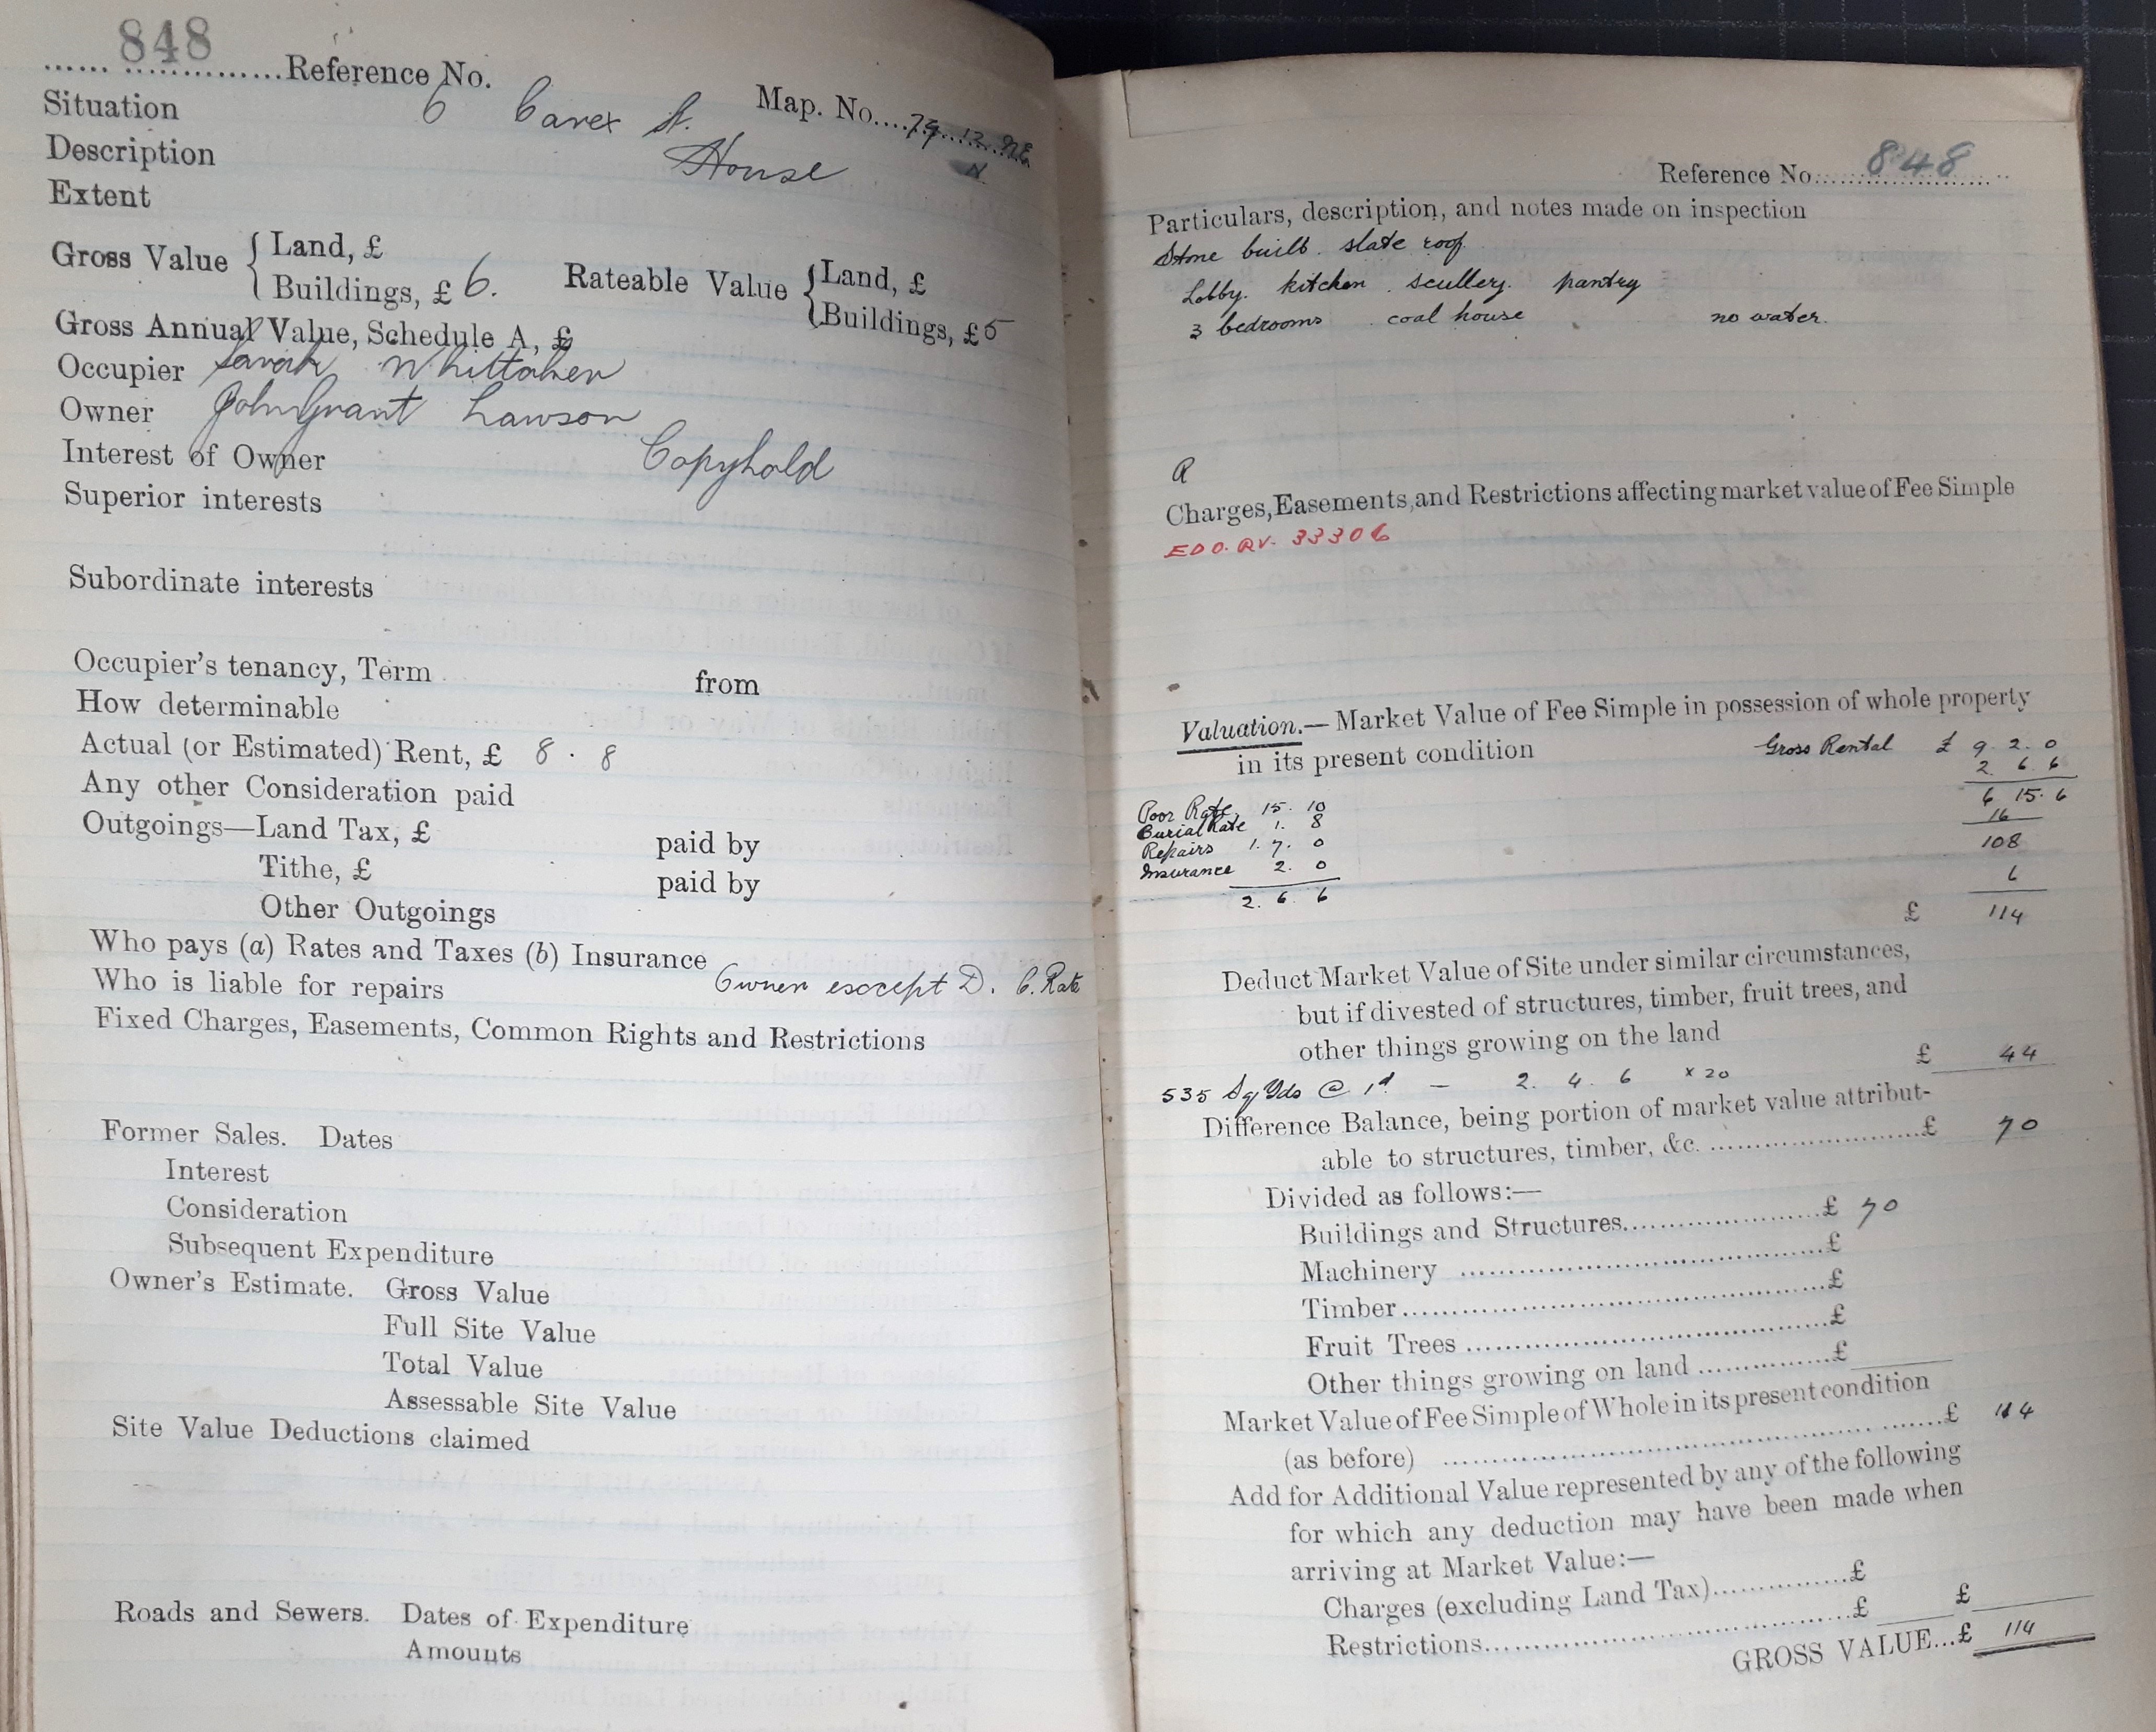 848
...... ...............Reference No.
Map. No....
Situation 6 Carex St.
Description House
Extent
Gross Value { Land, £
Buildings, £ 6.
Rateable Value { Land, £
Buildings, £ 5
Gross Annual Value, Schedule A, £
Occupier Sarah Whittaker
Owner John Grant Lawson
Interest of Owner Copyhold
Superior interests
Subordinate interests
Occupier's tenancy, Term from
How determinable
Actual (or Estimated) Rent, £ 8 . 8
Any other Consideration paid
Outgoings—Land Tax, £ paid by
Tithe, £ paid by
Other Outgoings
Who pays (a) Rates and Taxes (b) Insurance
Who is liable for repairs Owner except D. C. Rate
Fixed Charges, Easements, Common Rights and Restrictions
Former Sales. Dates
Interest
Consideration
Subsequent Expenditure
Owner's Estimate. Gross Value
Full Site Value
Total Value
Assessable Site Value
Site Value Deductions claimed
Roads and Sewers. Dates of Expenditure
Amounts
Reference No. 848
Particulars, description, and notes made on inspection
Stone built. slate roof.
Lobby. kitchen. scullery. pantry
3 bedrooms. coal house no water.
R
Charges, Easements, and Restrictions affecting market value of Fee Simple
EDO. RV. 33306
Valuation.— Market Value of Fee Simple in possession of whole property
in its present condition Gross Rental £ 9. 2. 0
2. 6. 6
6 15. 6
16
108
6
£ 114
Poor Rate, 15. 10
Burial Rate 1. 8
Repairs 1. 7. 0
Insurance 2. 0
2. 6. 6
Deduct Market Value of Site under similar circumstances,
but if divested of structures, timber, fruit trees, and
other things growing on the land £ 44
535 Sq Yds @ 1d — 2. 4. 6 x 20
Difference Balance, being portion of market value attribut-
able to structures, timber, &c. ........................£ 70
Divided as follows:—
Buildings and Structures......................£ 70
Machinery ........................................£
Timber................................................£
Fruit Trees ........................................£
Other things growing on land ...............£
Market Value of Fee Simple of Whole in its present condition
(as before) ................................................£ 114
Add for Additional Value represented by any of the following
for which any deduction may have been made when
arriving at Market Value:—
Charges (excluding Land Tax)...............£
Restrictions..........................................£ £
GROSS VALUE...£ 114